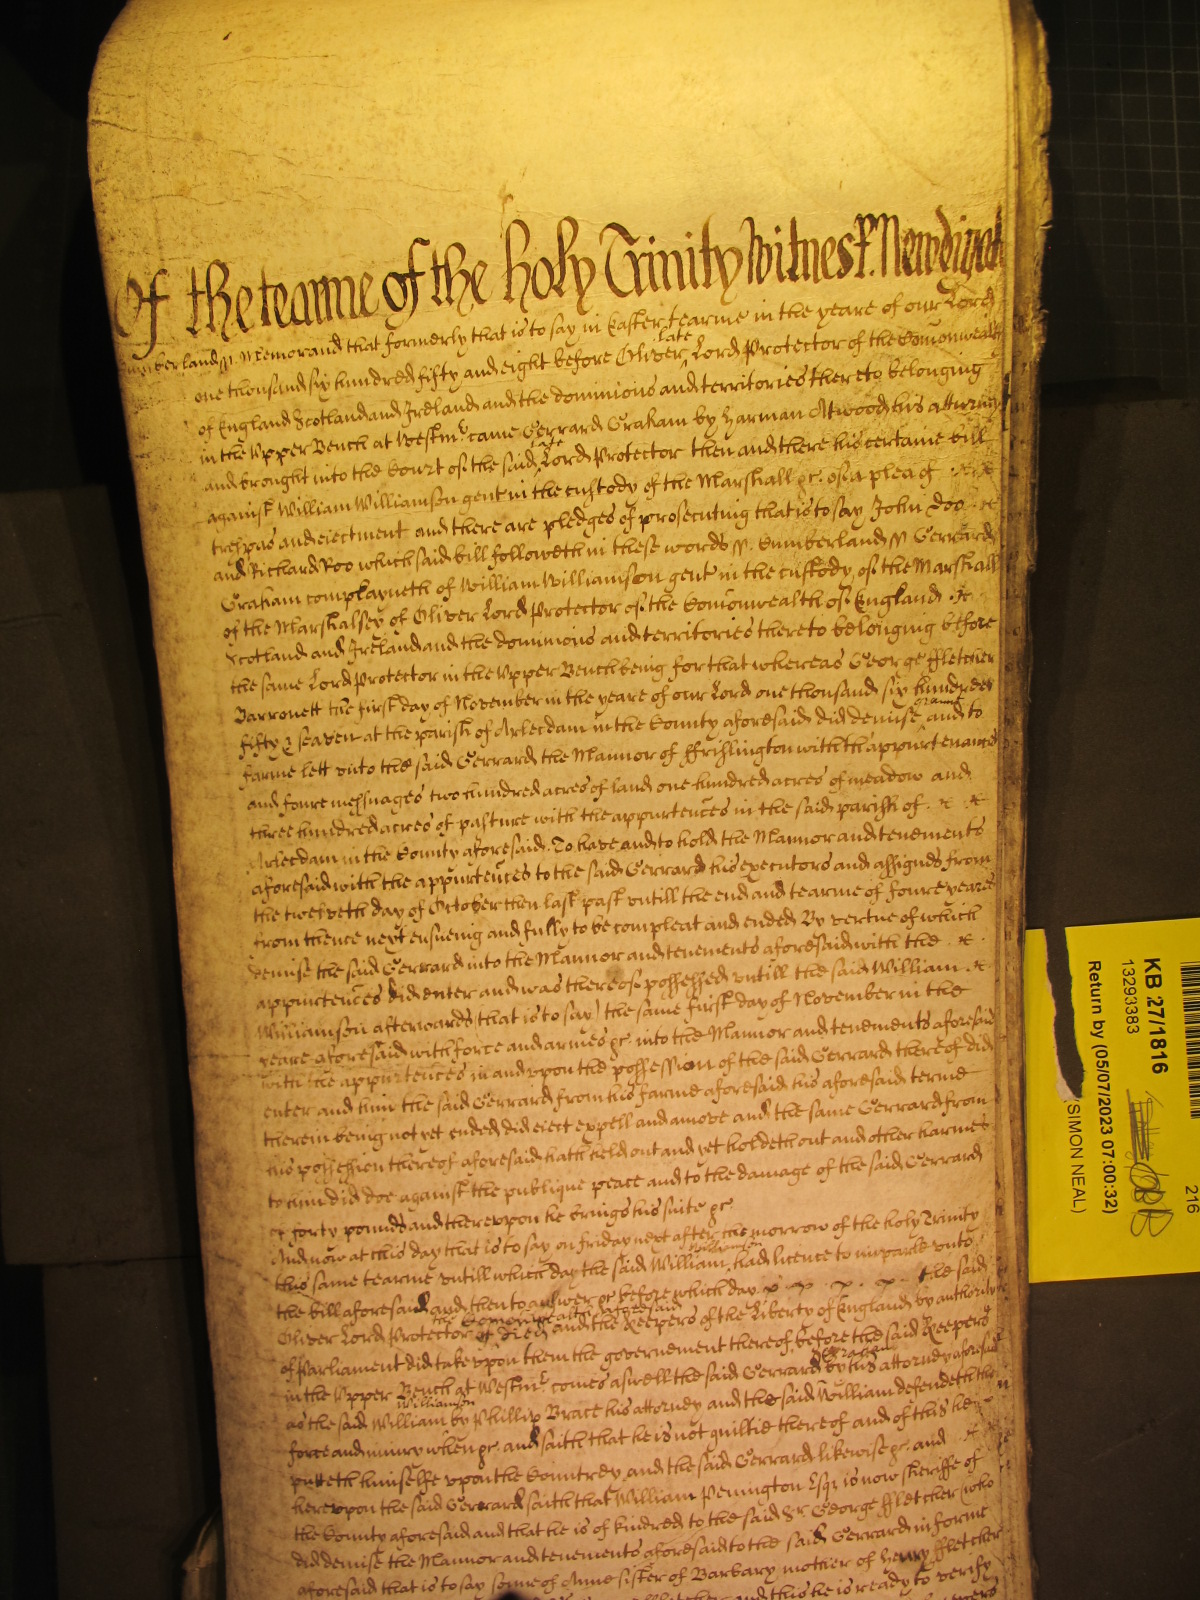 Of the tearme of the holy Trinity Witness R. Newdigat
Cumberland ss. Memorand that formerly that is to say in Easter tearme in the yeare of our Lord
one thousand six hundred fifty and eight before Oliver late Lord Protector of the Comonwealth
of England Scotland and Ireland and the dominions and territories thereto belonging
in the Upper Bench at Westmr came Gerrard Graham by Harman Atwood his atturney
and brought into the Court of the said late Lord Protector then and there his certaine bill
against William Williamson gent in the custody of the Marshall &c. of a plea of
trespas and eiectment and there are pledges of prosecuting that is to say John Doo
and Richard Roo which said bill followeth in these words ss. Cumberland ss Gerrard
Graham complayneth of William Williamson gent in the custody of the Marshall
of the Marshalsey of Oliver Lord Protector of the Comonwealth of England
Scotland and Ireland and the dominions and territories thereto belonging before
the same Lord Protector in the Upper Bench being for that whereas George ffletcher
Barronett the first day of November in the yeare of our Lord one thousand six hundred
fifty & seaven at the parish of Arlecdam in the County aforesaid did demise graunt and to
farme lett unto the said Gerrard the Mannor of ffrislington with th appurtenances
and foure messuages two hundred acres of land one hundred acres of meadow and
three hundred acres of pasture with the appurtences in the said parish of
Arlecdam in the County aforesaid. To have and to hold the Mannor and tenements
aforesaid with the appurtences to the said Gerrard his executors and assignes from
the twelveth day of October then last past untill the end and tearme of foure yeares
from thence next ensueing and fully to be compleat and ended By vertue of which
demise the said Gerrard into the Mannor and tenements aforesaid with the
appurtences did enter and was thereof possessed untill the said William
Williamson afterwards (that is to say) the same first day of November in the
yeare aforesaid with force and armes &c. into the Mannor and tenements aforesaid
with the appurtences in and upon the possession of the said Gerrard thereof did
enter and him the said Gerrard from his farme aforesaid his aforesaid terme
therein being not yet ended did eiect expell and amove and the same Gerrard from
his possession thereof aforesaid hath held out and yet holdeth out and other harmes
to him did doe against the publique peace and to the damage of the said Gerrard
of forty pounds and thereupon he brings his suite &c
And now at this day that is to say on friday next after the morrow of the holy Trinity
this same tearme untill which day the said William Williamson had licence to imparle unto
the bill aforesaid and then to answer &c before which day the said
Oliver Lord Protector of the Comonwealth aforesaid died and the Keepers of the Liberty of England by authority
of Parliament did take upon them the government thereof before the said Keepers
in the Upper Bench at Westmr comes aswell the said Gerrard Graham by his attorney aforesaid
as the said William Williamson by Phillip Brace his attorney and the said William defendeth the
force and iniury when &c. and saith that he is not guiltie thereof and of this he
putteth himselfe upon the Countrey and the said Gerrard likewise &c. and
hereupon the said Gerrard saith that William Pennington Esqr is now sheriffe of
the County aforesaid and that he is of kindred to the said Sr. George ffletcher who
did demise the Mannor and tenements aforesaid to the said Gerrard in forme
aforesaid that is to say sonne of Anne sister of Barbary mother of Henry ffletcher
and this he is ready to verify
KB 27/1816
13293383
Return by (05/07/2023 07:00:32)
(SIMON NEAL)
216